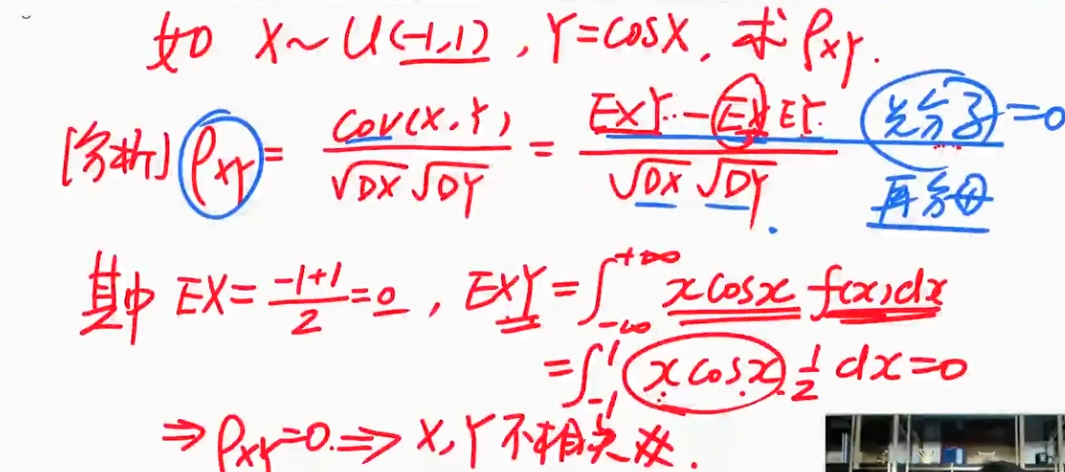 如 X~U(-1,1), Y=cosX, 求ρ_XY.
[分析] ρ_XY = Cov(X,Y)/(√DX √DY) = (EXY - EX EY)/(√DX √DY) 先分子=0
再分母
其中 EX = (-1+1)/2 = 0, EXY = ∫_{-∞}^{+∞} xcosx f(x)dx
= ∫_{-1}^{1} xcosx · 1/2 dx = 0
⇒ ρ_XY=0. ⇒ X,Y 不相关.